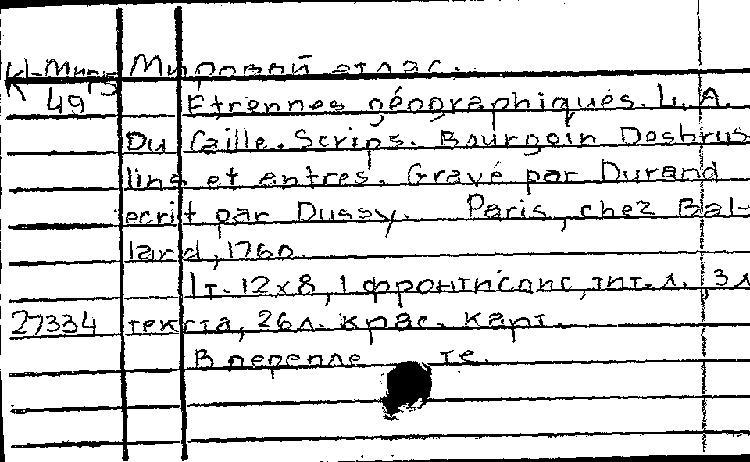 К-Мир5 Мировой атлас.
49 Etrennes géographiques. L. A.
Du Caille. Scrips. Bourgoin Desbrus
lins et antres. Gravé par Durand
ecrit par Dussy. Paris, chez Bal-
lard, 1760.
1т. 12x8, 1 фронтиспис, тит. л., 3л
27334 текста, 26л. крас. карт.
В перепле те.